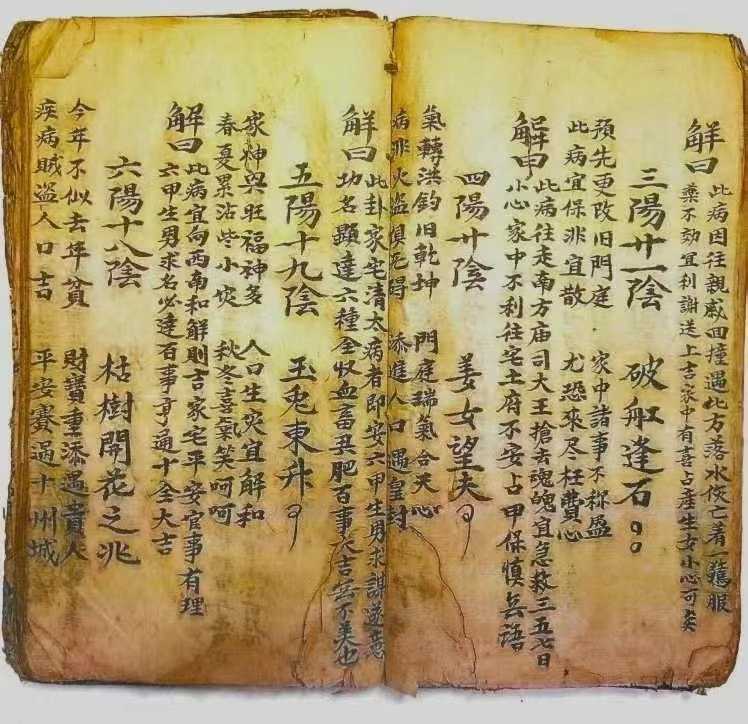 解曰此病因往親戚回撞遇北方落水伤亡着一舊服
藥不効宜利謝送上吉家中有喜占產生女小心可矣
三陽廿一陰 破舡逢石
預先更改旧門庭 家中諸事不称盈
此病宜保非宜散 尤恐來尽枉費心
解曰此病往走南方庙司大王搶去魂魄宜急救三五七日
小心家中不利往宅土府不安占甲保慎兵語
四陽廿陰 姜女望夫
氣轉洪鈞旧乾坤 門庭瑞氣合天心
病非火盗慎 添進人口遇皇封
解曰此卦家宅清太病者即安六甲生男求謀遂意
功名顯達六種全收血畜丑肥百事大吉無不美也
五陽十九陰 玉兎東升
家神興旺福神多 人口生灾宜解和
春夏累沾些小灾 秋冬喜氣笑呵呵
解曰此病宜向西南和解則吉家宅平安官事有理
六甲生男求名必達百事亨通十全大吉
六陽十八陰 枯樹開花之兆
今年不似去年貧 財寶重添遇貴人
疾病賊盗人口吉 平安賽過十州城